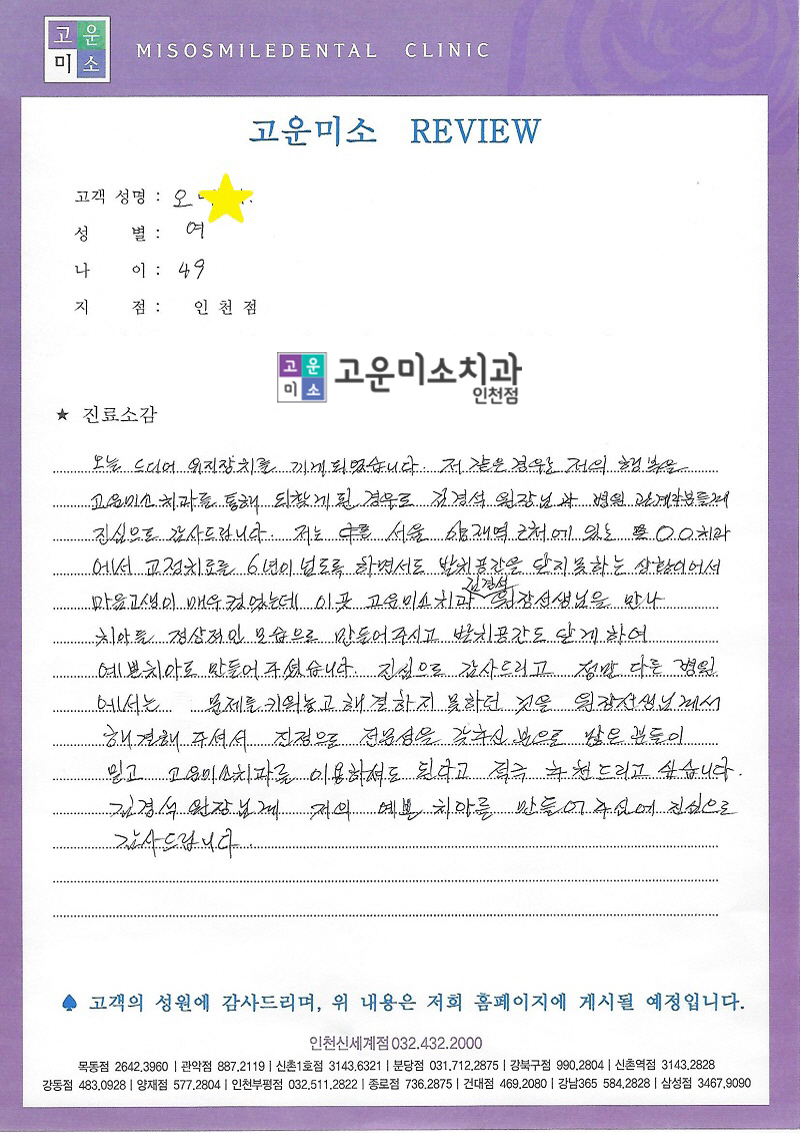 고운
미소
MISOSMILEDENTAL CLINIC
고운미소 REVIEW
고객 성명 : 오
성 별 : 여
나 이 : 49
지 점 : 인천점
고운
미소
고운미소치과
인천점
★ 진료소감
오늘 드디어 유지장치를 끼게 되었습니다. 저 같은 경우는 저의 행복을
고운미소치과를 통해 되찾게 된 경우로 김경석 원장님과 병원 관계자분들께
진심으로 감사드립니다. 저는 서울 양재역 근처에 있는 O.O치과
에서 교정치료를 6년이 넘도록 하면서도 발치공간을 닫지 못하는 상황이어서
마음고생이 매우 컸었는데 이곳 고운미소치과 김경석 원장선생님을 만나
치아를 정상적인 모습으로 만들어주시고 발치공간도 닫게 하여
예쁜치아로 만들어 주셨습니다. 진심으로 감사드리고 정말 다른 병원
에서는 문제를 키워놓고 해결하지 못하던 것을 원장선생님께서
해결해 주셔서 진정으로 전문성을 갖추신 분으로 많은 분들이
믿고 고운미소치과를 이용하셔도 된다고 적극 추천드리고 싶습니다.
김경석 원장님께 저의 예쁜 치아를 만들어 주심에 진심으로
감사드립니다.
♠ 고객의 성원에 감사드리며, 위 내용은 저희 홈페이지에 게시될 예정입니다.
인천신세계점 032.432.2000
목동점 2642.3960 | 관악점 887.2119 | 신촌1호점 3143.6321 | 분당점 031.712.2875 | 강북구점 990.2804 | 신촌역점 3143.2828
강동점 483.0928 | 양재점 577.2804 | 인천부평점 032.511.2822 | 종로점 736.2875 | 건대점 469.2080 | 강남365 584.2828 | 삼성점 3467.9090